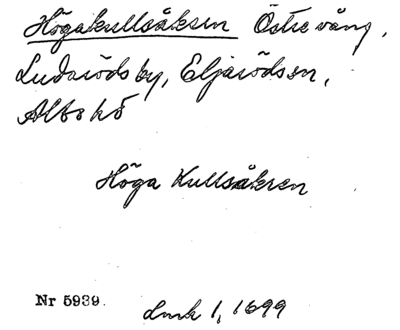 Högakullsåkren Östre vång,
Ludarödsby, Eljarödssn,
Albo hd
Höga Kullsåkren
Nr 5939.
Lmk 1, 1699